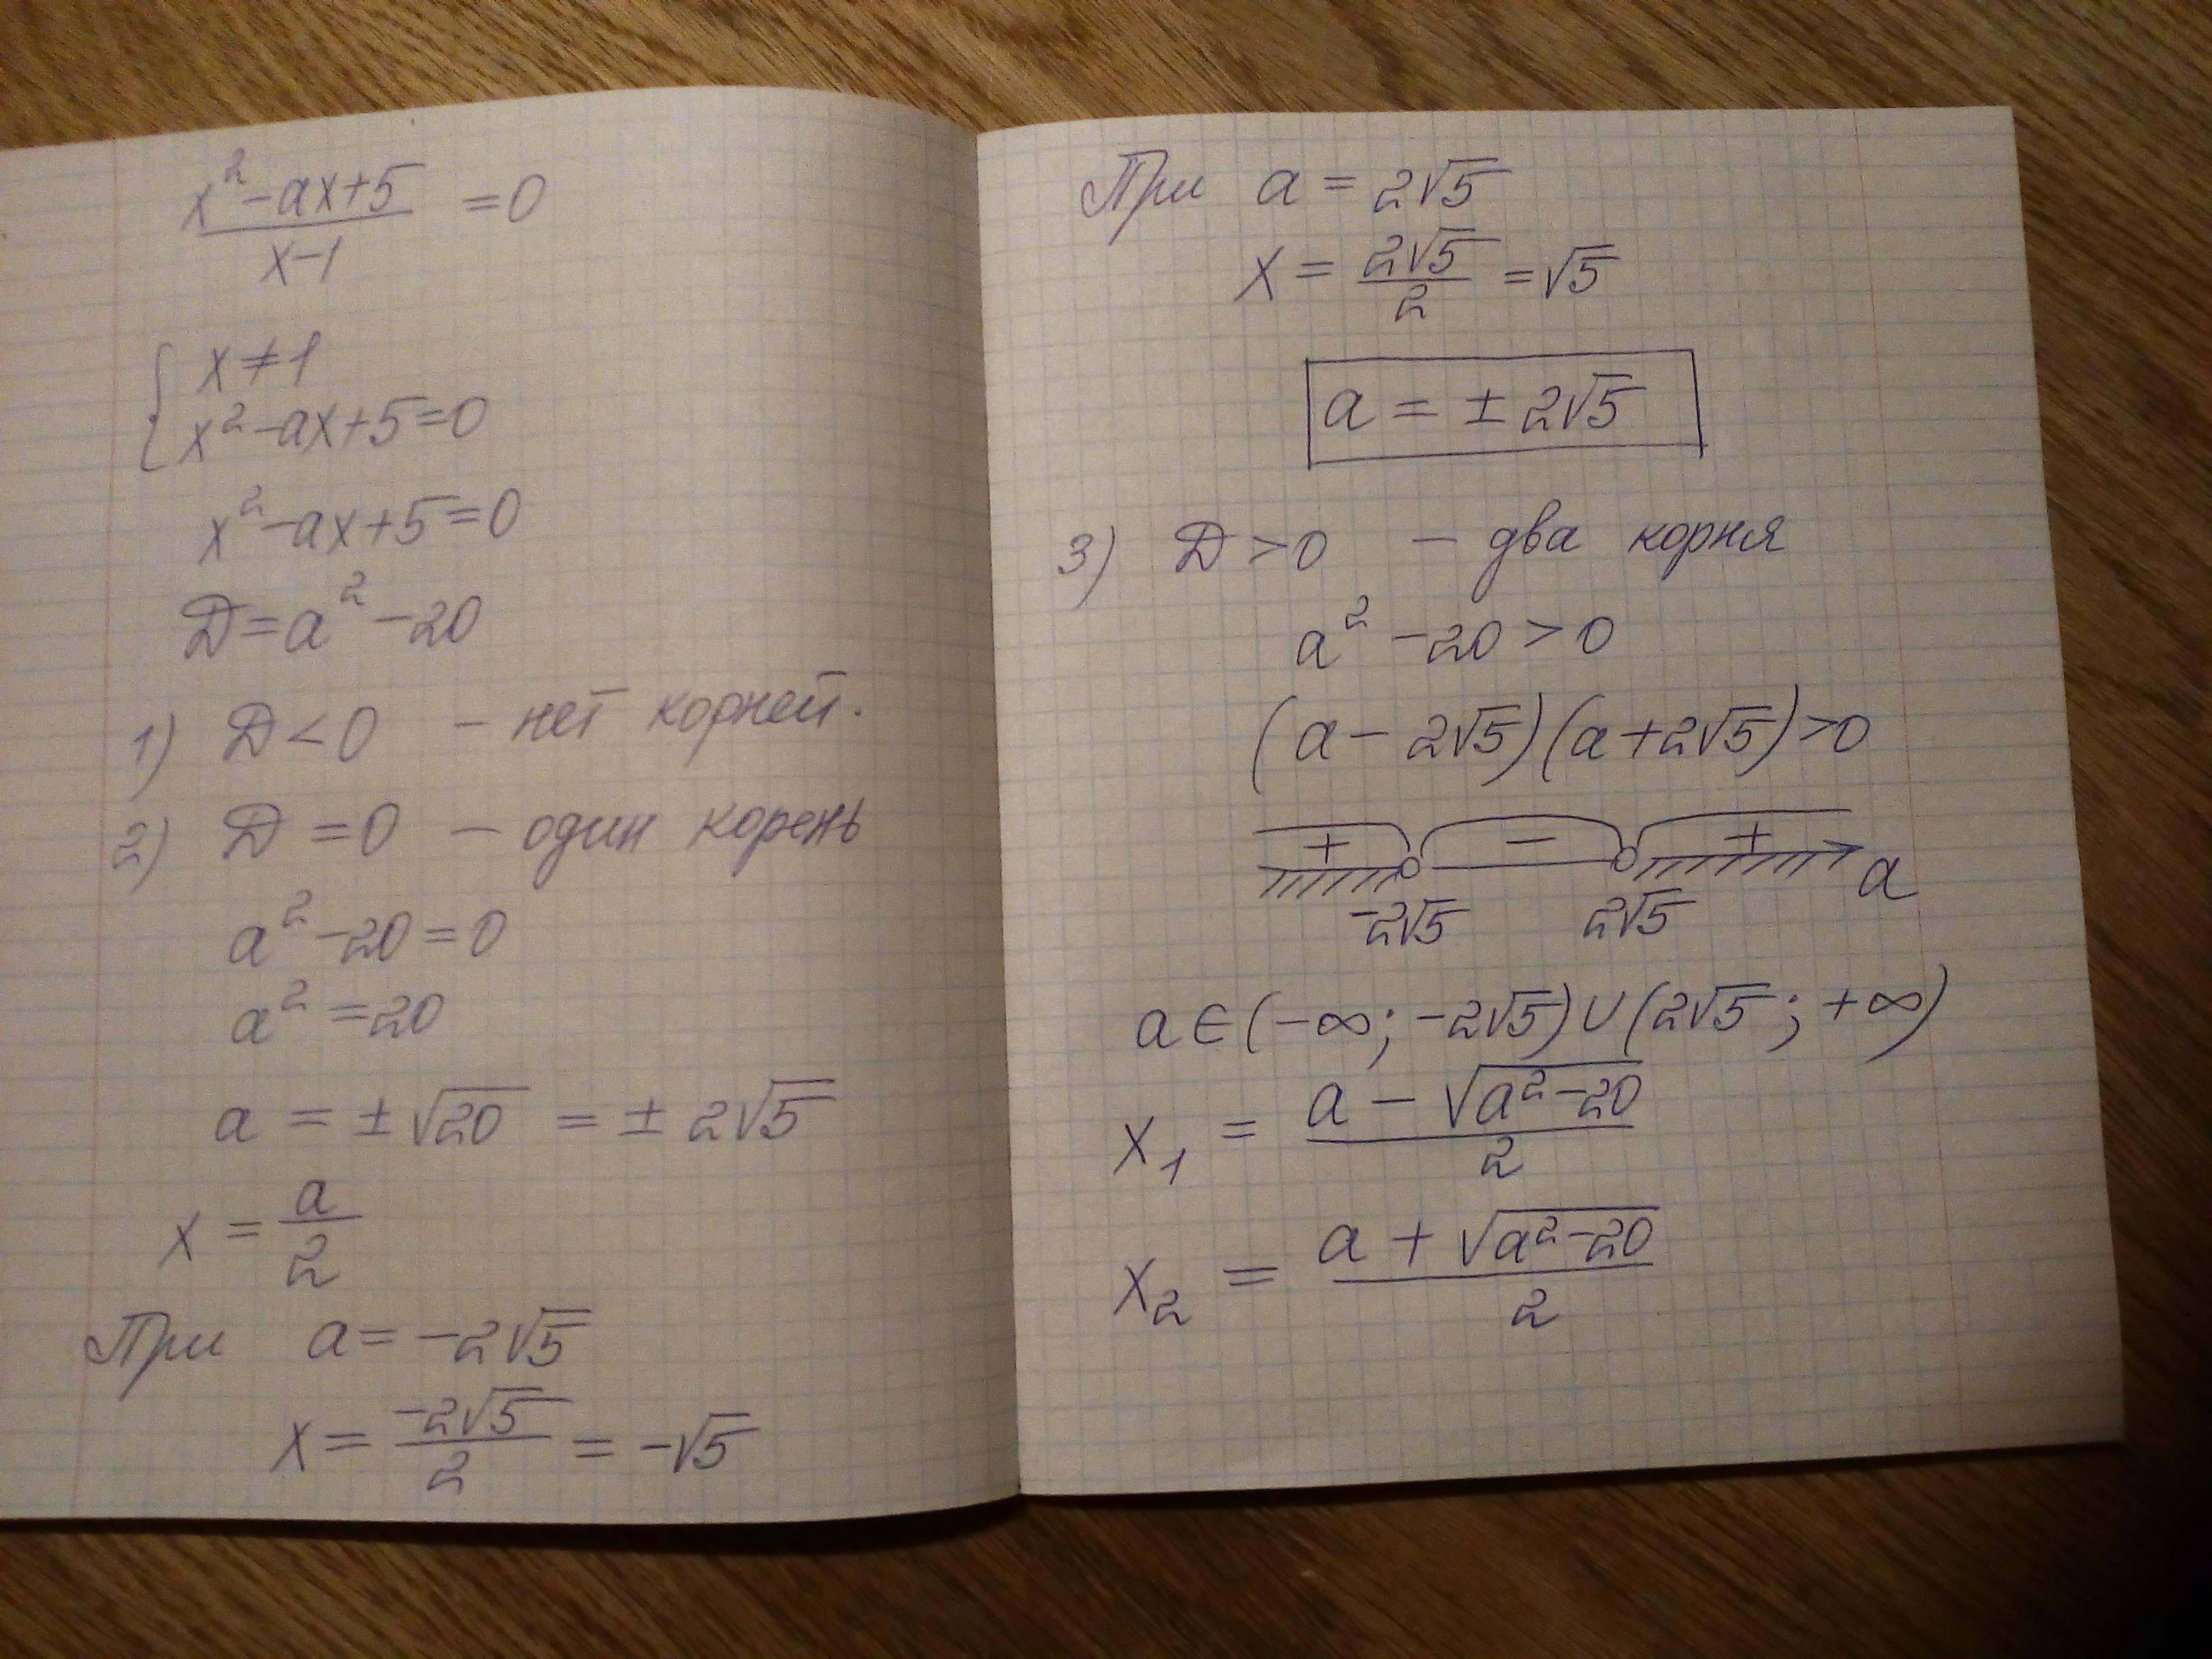 x²-ax+5 / x-1 = 0
{ x≠1
x²-ax+5=0
x²-ax+5=0
D=a²-20
1) D<0 - нет корней.
2) D=0 - один корень
a²-20=0
a²=20
a = ±√20 = ±2√5
x = a/2
При a=-2√5
x = -2√5/2 = -√5
При a = 2√5
x = 2√5/2 = √5
a = ±2√5
3) D>0 - два корня
a²-20>0
(a-2√5)(a+2√5)>0
+ - +
-2√5 2√5 a
a∈(-∞; -2√5)∪(2√5; +∞)
x₁ = a-√a²-20 / 2
x₂ = a+√a²-20 / 2